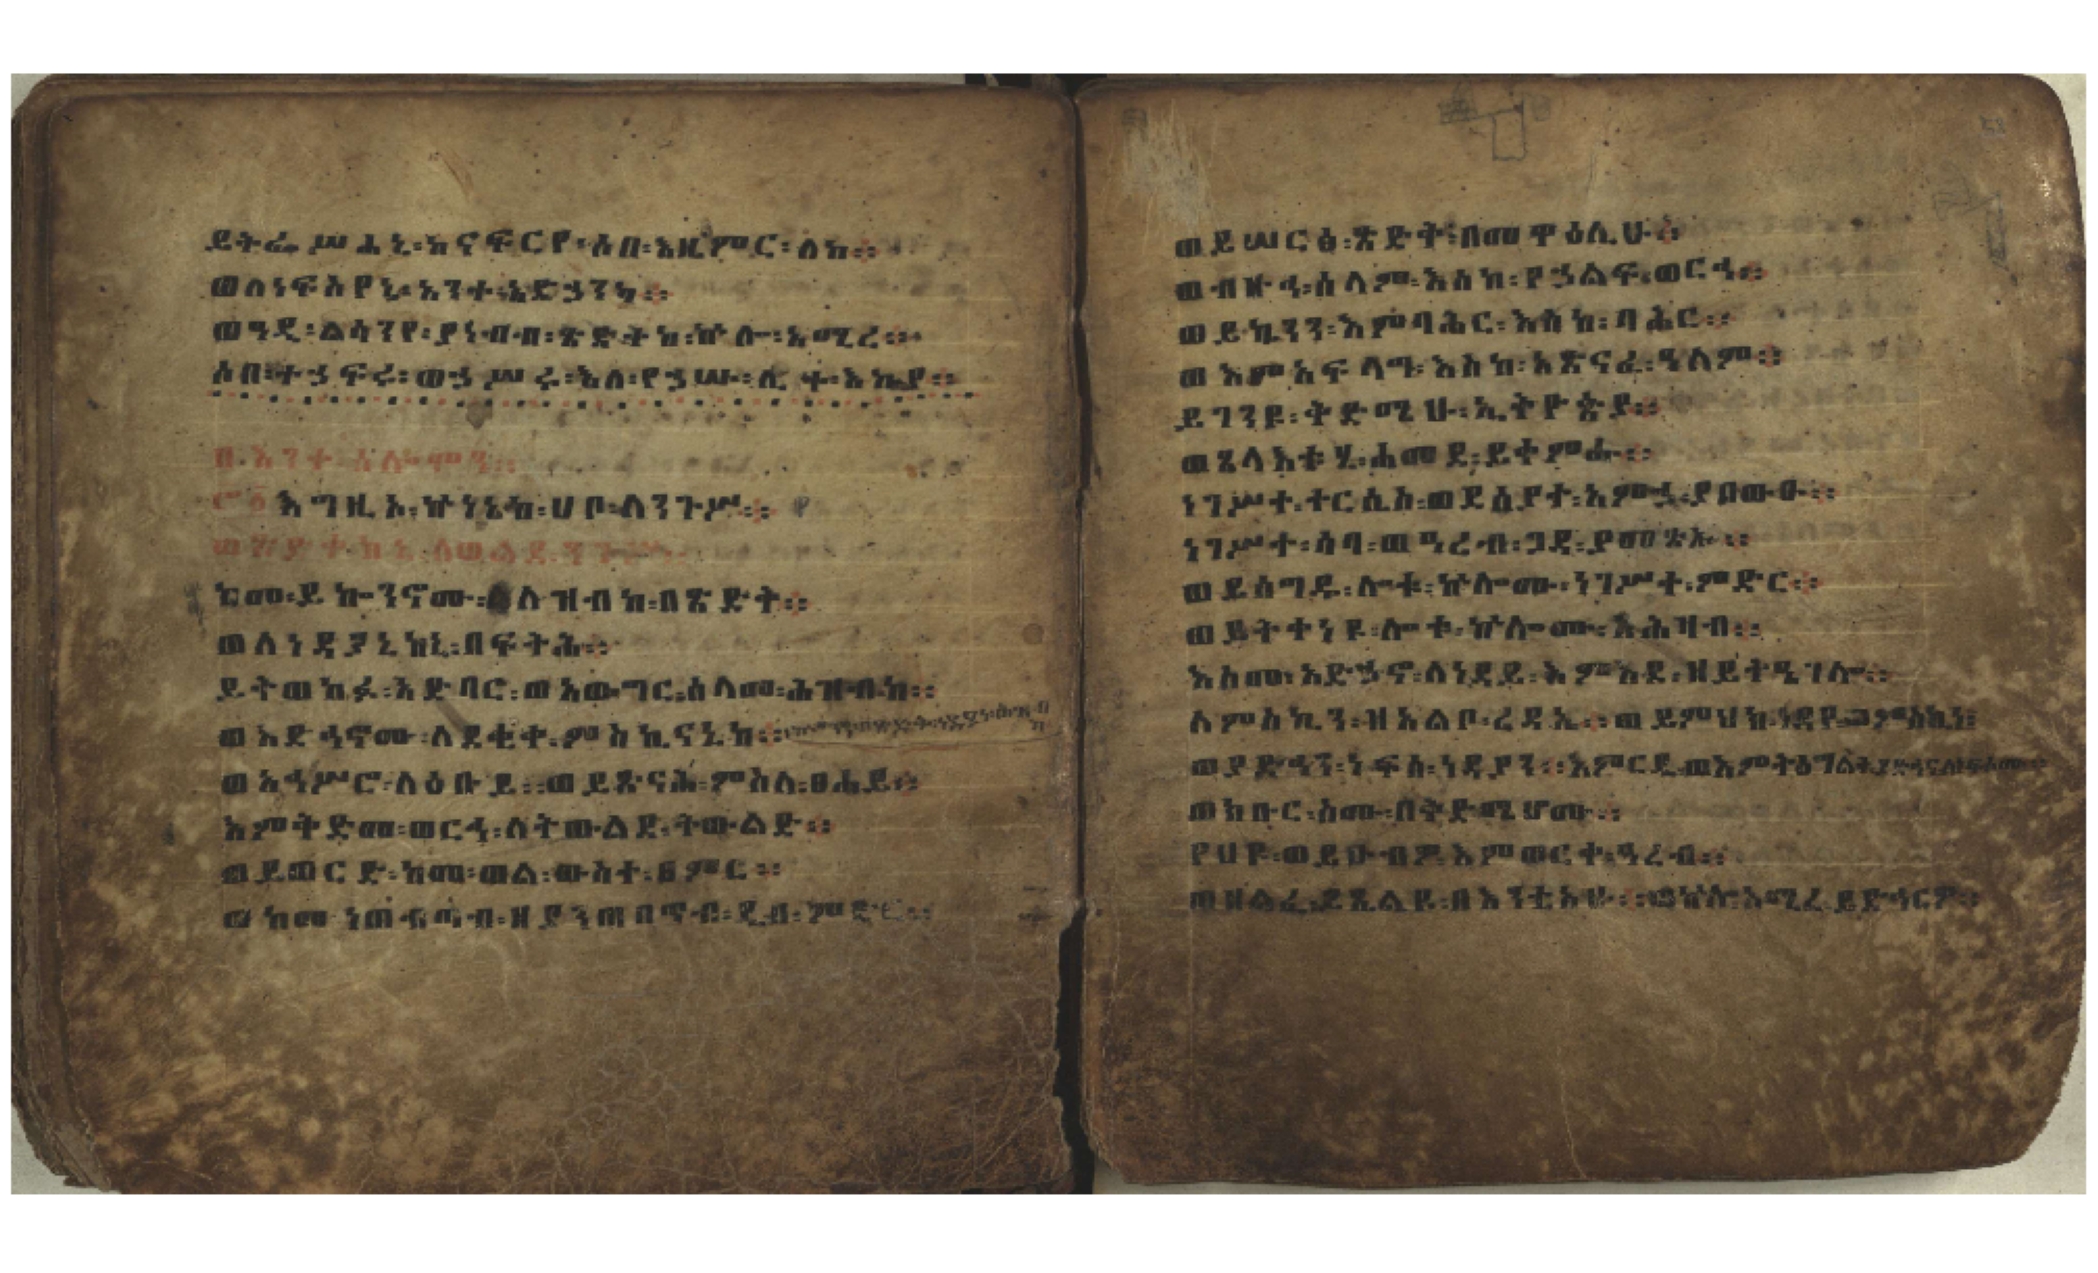 ይትፌሥሓኒ፡ከናፍርየ፡ሶበ፡እዜምር፡ለከ።
ወለነፍስየኒ፡እንተ፡አድኃንካ።
ወዓዲ፡ልሳንየ፡ያነብብ፡ጽድቀከ፡ኵሎ፡አሚረ።
ሶበ፡ተኃፍሩ፡ወኃሥሩ፡እለ፡የኃሡ፡ሊተ፡እኪየ።
በእንተ፡ሰሎሞን።
፸፩ እግዚኦ፡ኵነኔከ፡ሀቦ፡ለንጉሥ።
ወጽድቀከኒ፡ለወልደ፡ንጉሥ።
ከመ፡ይኰንኖሙ፡ለሕዝብከ፡በጽድቅ።
ወለነዳያኒከኒ፡በፍትሕ።
ይትወከፉ፡አድባር፡ወአውግር፡ሰላመ፡ሕዝብከ።
ወአድኅኖሙ፡ለደቂቀ፡ምስኪናኒከ።
ወአኅሥሮ፡ለዕቡይ።ወይጸንሕ፡ምስለ፡ፀሐይ።
እምቅድመ፡ወርኅ፡ለትውልደ፡ትውልድ።
ወይወርድ፡ከመ፡ጠል፡ውስተ፡ፀምር።
ወከመ፡ነጠብጣብ፡ዘያንጠበጥብ፡ዲበ፡ምድር።
ወይሠርፅ፡ጽድቅ፡በመዋዕሊሁ።
ወብዙኅ፡ሰላም፡እስከ፡የኃልፍ፡ወርኅ።
ወይኴንን፡እምባሕር፡እስከ፡ባሕር።
ወእምአፍላግ፡እስከ፡አጽናፈ፡ዓለም።
ይገንዩ፡ቅድሜሁ፡ኢትዮጵያ።
ወጸላእቱሂ፡ሐመደ፡ይቀምሑ።
ነገሥተ፡ተርሴስ፡ወደሰያተ፡አምኃ፡ያበውኡ።
ነገሥተ፡ሳባ፡ወዓረብ፡ጋዳ፡ያመጽኡ።
ወይሰግዱ፡ሎቱ፡ኵሎሙ፡ነገሥተ፡ምድር።
ወይትቀነዩ፡ሎቱ፡ኵሎሙ፡አሕዛብ።
እስመ፡አድኃኖ፡ለነዳይ፡እምእደ፡ዘይትዔገሎ።
ለምስኪን፡ዘአልቦ፡ረዳኢ።ወይምህክ፡ነዳየ፡ወምስኪነ፡
ወያድኅን፡ነፍሰ፡ነዳያን።እምርዴ፡ወእምትዕግልት፡ያድኅና፡ለነፍሶሙ።
ወክቡር፡ስሙ፡በቅድሜሆሙ።
የሀዩ፡ወይሁብዎ፡እምወርቀ፡ዓረብ።
ወዘልፈ፡ይጼልዩ፡በእንቲአሁ።ወኵሎ፡አሚረ፡ይድኅርዎ።